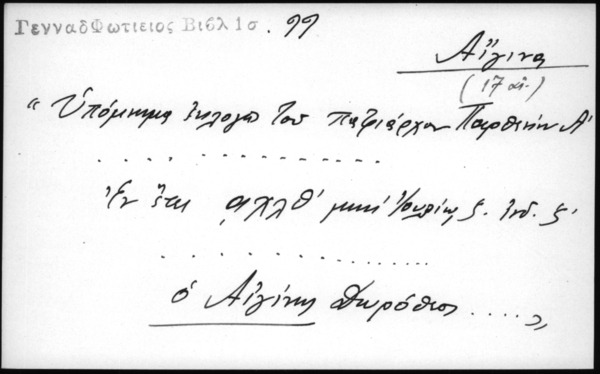 ΓενναδΦωτιειος Βιβλ 1σ. 99
Αἴγινα
(17 αἰ.)
"Ὑπόμνημα ἐκλογῆς τοῦ πατριάρχου Παρθενίου Α'
. . . . . . . . . . . . . .
Ἐν ἔτει αχλθ' μηνὶ Ἰουλίῳ ζ. ἰνδ. ζ'
. . . . . . . . . . . . . .
ὁ Αἰγίνης Δωρόθεος .....»